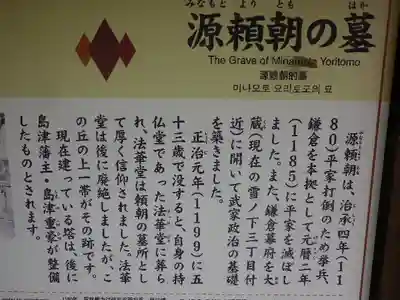 みなもと より とも はか
源頼朝の墓
The Grave of Minamoto Yoritomo
源赖朝的墓
미나모토 요리토모의 묘
源頼朝は、治承四年(11
80)平家打倒のため挙兵、
鎌倉を本拠として元暦二年
(1185)に平家を滅ぼし
ました。また、鎌倉幕府を大
蔵(現在の雪ノ下三丁目付
近)に開いて武家政治の基礎
を築きました。
正治元年(1199)に五
十三歳で没すると、自身の持
仏堂であった法華堂に葬ら
れ、法華堂は頼朝の墓所とし
て厚く信仰されました。法華
堂は後に廃絶しましたが、こ
の丘の上一帯がその跡です。
現在建っている塔は、後に
島津藩主・島津重豪が整備
したものとされます。